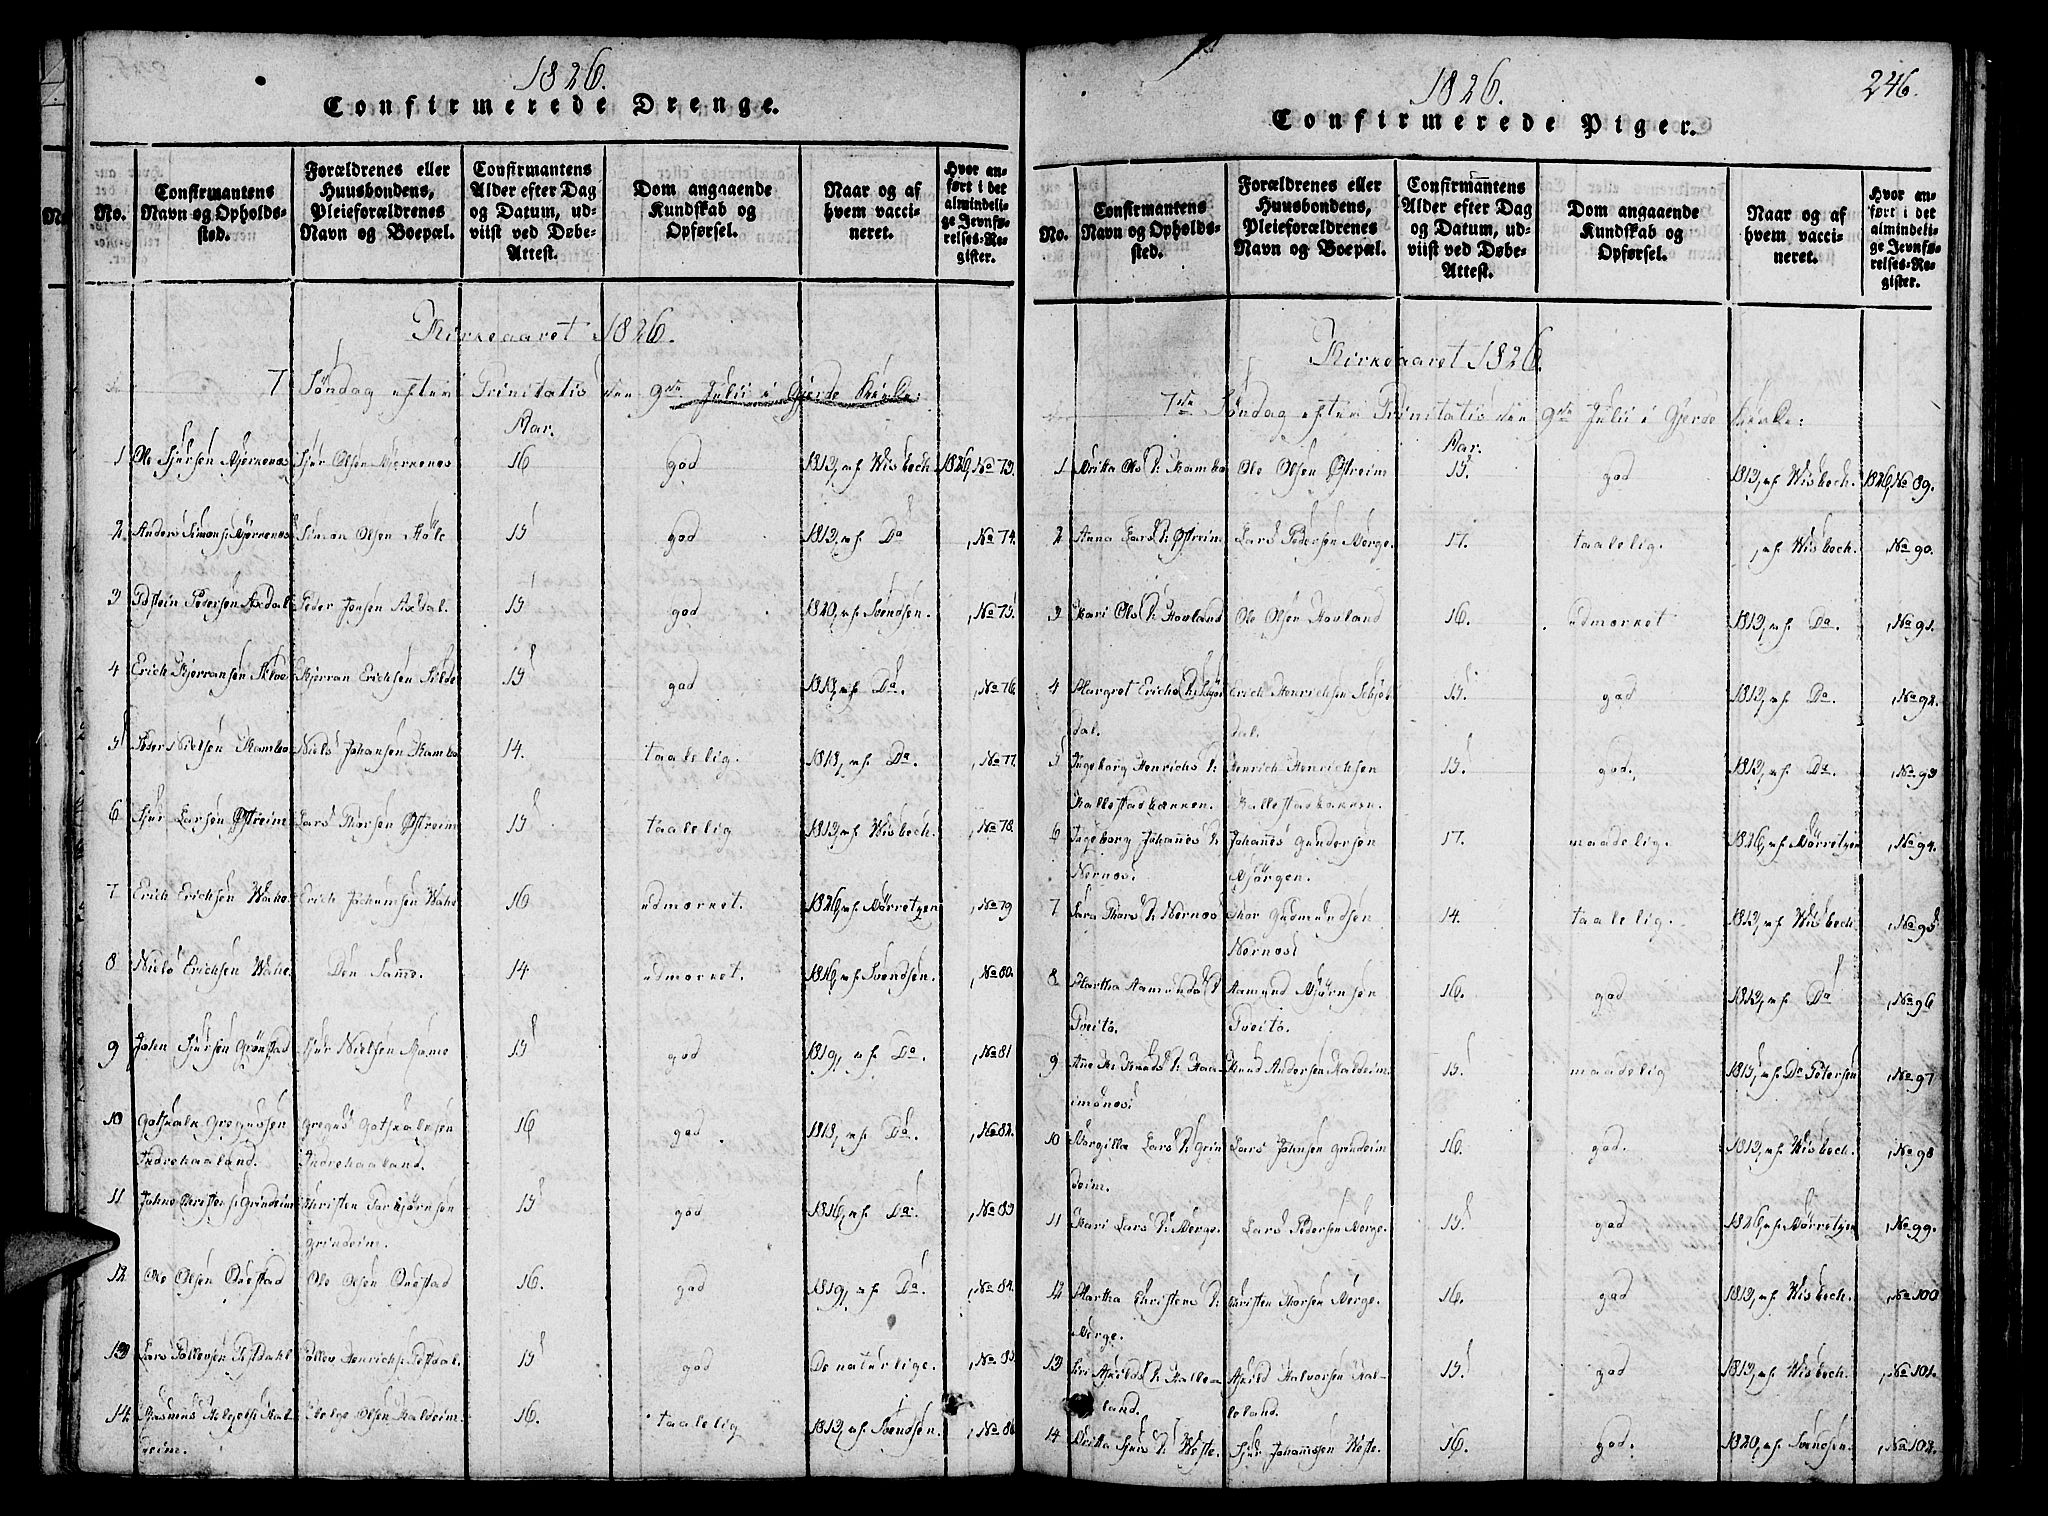 1826.
Confirmerede Drenge.
No.
Confirmantens Navn og Opholds-sted.
Forældrenes eller Huusbondens, Pleieforældrenes Navn og Boepæl.
Confirmantens Alder efter Dag og Datum, ud-viist ved Døbe-Attest.
Dom angaaende Kundskab og Opførsel.
Naar og af hvem vacci-neret.
Hvor an-ført i det almindeli-ge Jevnfø-relses-Re-gister.
Kirkeaaret 1826.
7 Søndag efter Trinitatis den 9de Julii i Gjerde Kirke:
Aar.
1 Ole Sjursen Bjerkenes Sjur Olsen Bjerkenes 16 god 1813, af Wisbech. 1826, No 73.
2 Anders Simons: Bjerkenes Simon Olsen Høle 15 god 1813, af Do , No 74.
3 Østein Pedersen Axdal Peder Jonsen Axdal. 15 god 1820, af Svendsen. , No 75.
4 Erich Bjerransen Bjerran Erichsen Silde 15 god 1813, af Do. , No 76.
5 Peder Nielsen Kambe Niels Johansen Kambe 14. taalelig. 1813, af Do. , No 77.
6 Sjur Larsen Østreim Lars Thorsen Østreim 15 taalelig 1813, af Wisbech. , No 78.
7 Erich Erichsen Wake Erich Johansen Wake 16 udmærket. 1826, af Børretzen , No 79
8 Niels Erichsen Wake. Den Samme. 14 udmærket. 1816, af Svendsen , No 80.
9 John Sjursen Grønstad Sjur Nielsen 15 god 1819, af Do. , No 81
10 Gotskalk Gregussen Gregus Gotskalksen 16 god. 1813, af Do. , No 82.
Indrehaaland. Indrehaaland.
11 Johne Christens: Grindeim Christen Torbjørnsen 15 god 1816, af Do. , No 83
Grindeim.
12 Ole Olsen Onestad Ole Olsen Onestad 16. god 1819, af Do. , No 84.
13 Lars Tollevsen Tollev Henrichs: 15 god De naturlige. , No 85.
14 Rasmus Helges: Kal- Helge Olsen Kaldeim. 16. taalelig 1813, af Svendsen. , No 86
deim.
1826.
246.
Confirmerede Piger.
No.
Confirmantens Navn og Opholds-sted.
Forældrenes eller Huusbondens, Pleieforældrenes Navn og Boepæl.
Confirmantens Alder efter Dag og Datum, ud-viist ved Døbe-Attest.
Dom angaaende Kundskab og Opførsel.
Naar og af hvem vacci-neret.
Hvor an-ført i det almindeli-ge Jevnfø-relses-Re-gister.
Kirkeaaret 1826.
7de Søndag efter Trinitatis den 9de Julii i Gjerde Kirke:
Aar.
1 Brita Ols D: Kambe Ole Olsen Østreim 15. god 1813, af Wisbech. 1826, No 89.
2 Anna Lars D: Østreim Lars Pedersen Berge. 17. taalelig. , af Wisbech. , No 90.
3 Kari Ols D: Hovland Ole Olsen Hovland 16. udmærket 1813, af Do. , No 91.
4 Margret Erichs D: Erich Henrichsen 15. god 1812, af Do. , No 92.
dal. dal.
5 Ingeborg Henrichs D: Henrich Henrichsen 15. god. 1813, af Do , No 93
Kallestadbakken. Kallestadbakken.
6 Ingeborg Johannes D: Johannes Gundersen 17. maadelig. 1826, af Børretzen , No 94.
Nernes. Bjørgen.
7 Sara Thors D: Nernes Thor Gudmundsen 14. taalelig. 1813, af Wisbech , No 95
Nernes.
8 Martha Aamunds D: Aamund Bjørnsen 16. god 1813, af Do , No 96
Tveito. Tveito.
9 Knuds D: Knud Andersen Kaldeim. 15. maadelig 1815, af Do Petersen , No 97
10 Lars D: Grin- Lars Johnsen Grindeim 16. god. 1813, af Wisbech. , No 98
deim.
11 Kari Lars D: Berge. Lars Pedersen Berge. 15. god 1826, af Børretzen , No 99.
12 Martha Christens D: Christen Thorsen Berge. 16. god 1813, af Wisbech. , No 100
Berge.
13 Siri Askilds D: Kalle- Askild Halvorsen Kal- 15. god 1813, af Wisbech , No 101.
land. leland.
14 Brita Sjurs D: Weste. Sjur Johannssen Weste. 16. god. 1820, af Svendsen. , No 102.